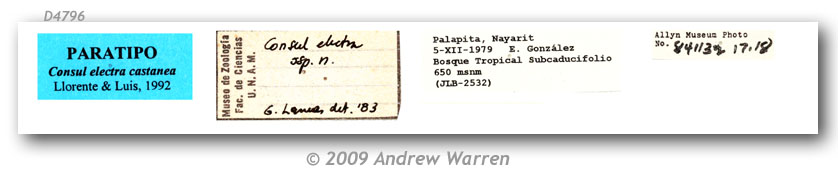 D4796
PARATIPO
Consul electra castanea
Llorente & Luis, 1992
Museo de Zoología
Fac. de Ciencias
U. N. A. M.
Consul electra
ssp. n.
G. Lamas det. '83
Palapita, Nayarit
5-XII-1979 E. González
Bosque Tropical Subcaducifolio
650 msnm
(JLB-2532)
Allyn Museum Photo
No. 17.18
© 2009 Andrew Warren